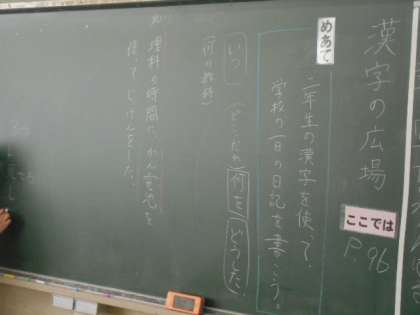 漢字の広場
ここでは
P.96
めあて
二年生の漢字を使って、
学校の一日の日記を書こう。
いつ (どこでだれが) 何を どうした。
(何の教科)
理科の時間に、かん電池を
使って じっけんをした。